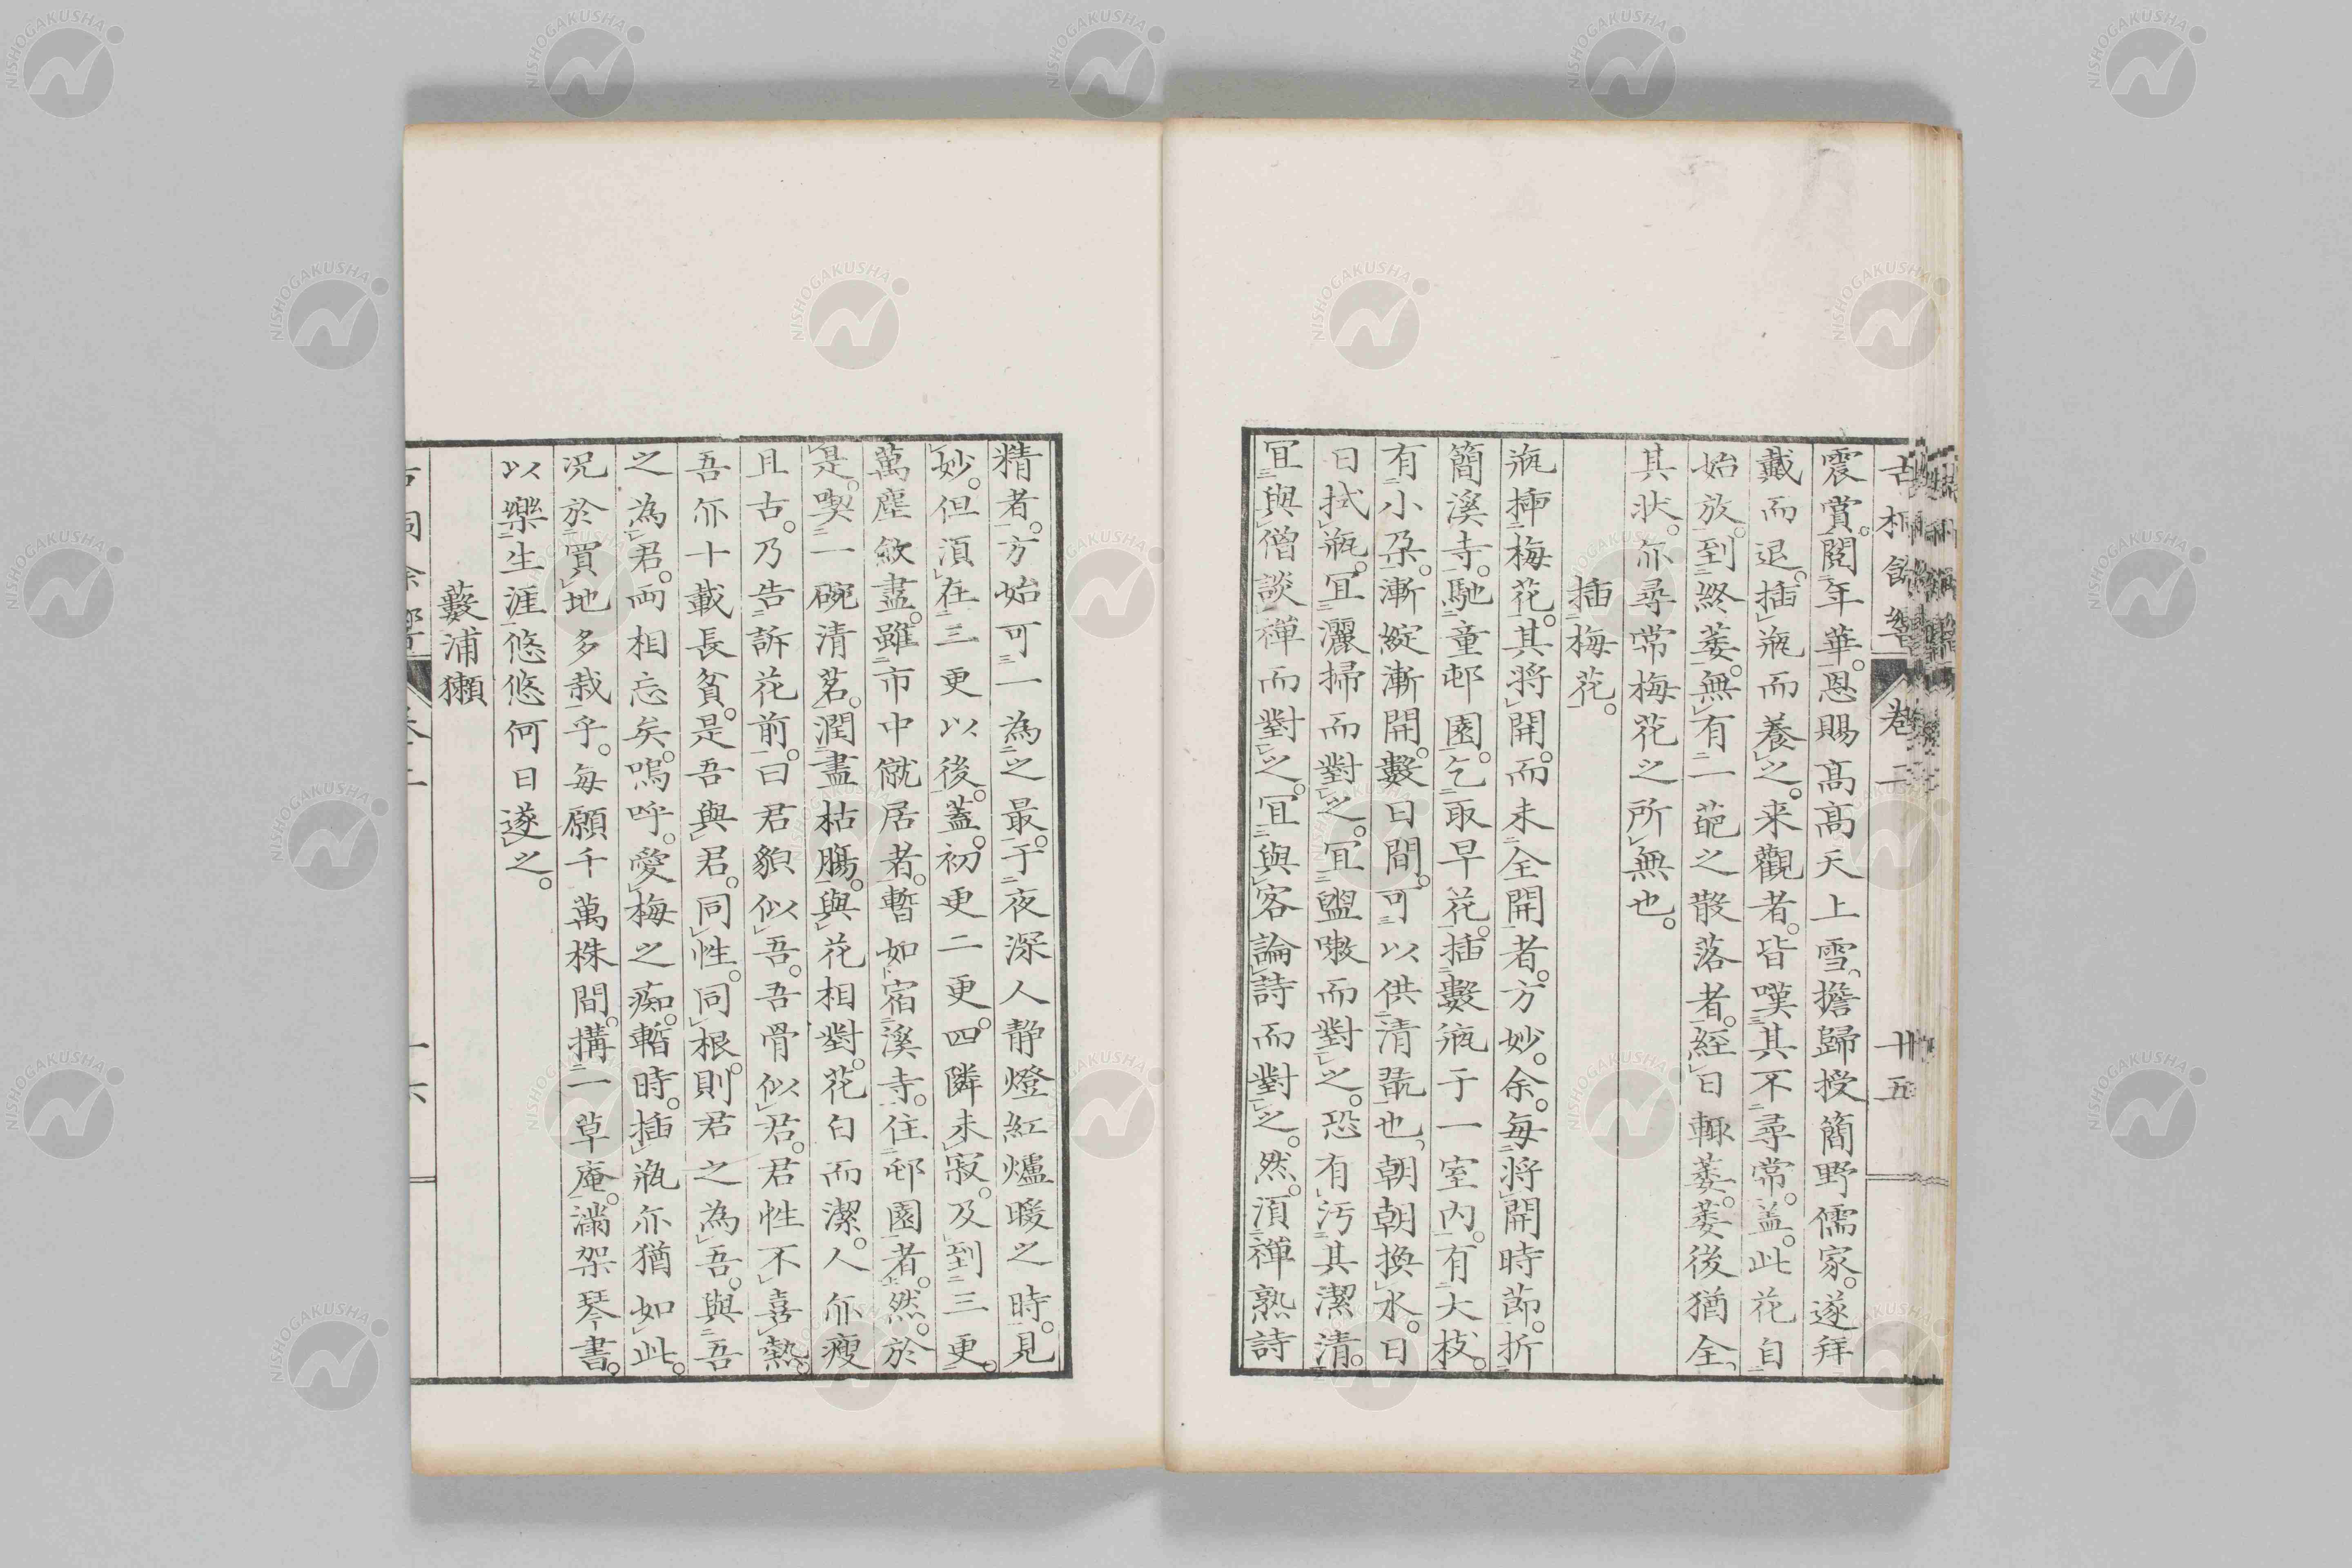 古桐餘響 卷二 廿五
震賞。閲年華。恩賜髙髙天上雪、擔歸授簡野儒家。遂拜
戴而退。插瓶而養之。来觀者。皆嘆其不尋常。盖此花自
始放。到終萎。無有一葩之散落者。經日輙萎。萎後猶全
其状。亦尋常梅花之所無也。
插梅花。
瓶揷梅花。其将開。而未全開者。方妙。余。每将開時節。折
簡溪寺。馳童邨園。乞取早花。插數瓶于一室内。有大枝。
有小朶。漸綻漸開。數日間。可以供清翫也、朝朝換水。日
日拭瓶。冝灑掃而對之。冝盥嗽而對之。恐有汚其潔清。
冝與僧談禅而對之。冝與客論詩而對之。然。湏禅熟詩
精者。方始可一為之最。于夜深人静燈紅爐暖之時。見
妙。但湏在三更以後。蓋。初更二更。四隣未寂。及到三更。
萬塵斂盡。雖市中僦居者。暫如宿溪寺。住邨園者。然。於
是。喫一碗清茗。潤盡枯膓。與花相對。花白而潔。人亦瘦
且古。乃告訴花前。曰君貌似吾。吾骨似君。君性不喜熱。
吾亦十載長貧。是吾與君。同性。同根。則君之為吾。與吾
之為君。両相忘矣。嗚呼。愛梅之痴。暫時。插瓶亦猶如此。
况於買地多栽乎。每願千萬株間。搆一草庵。滿架琴書。
以樂生涯悠悠何日遂之。
藪浦獺